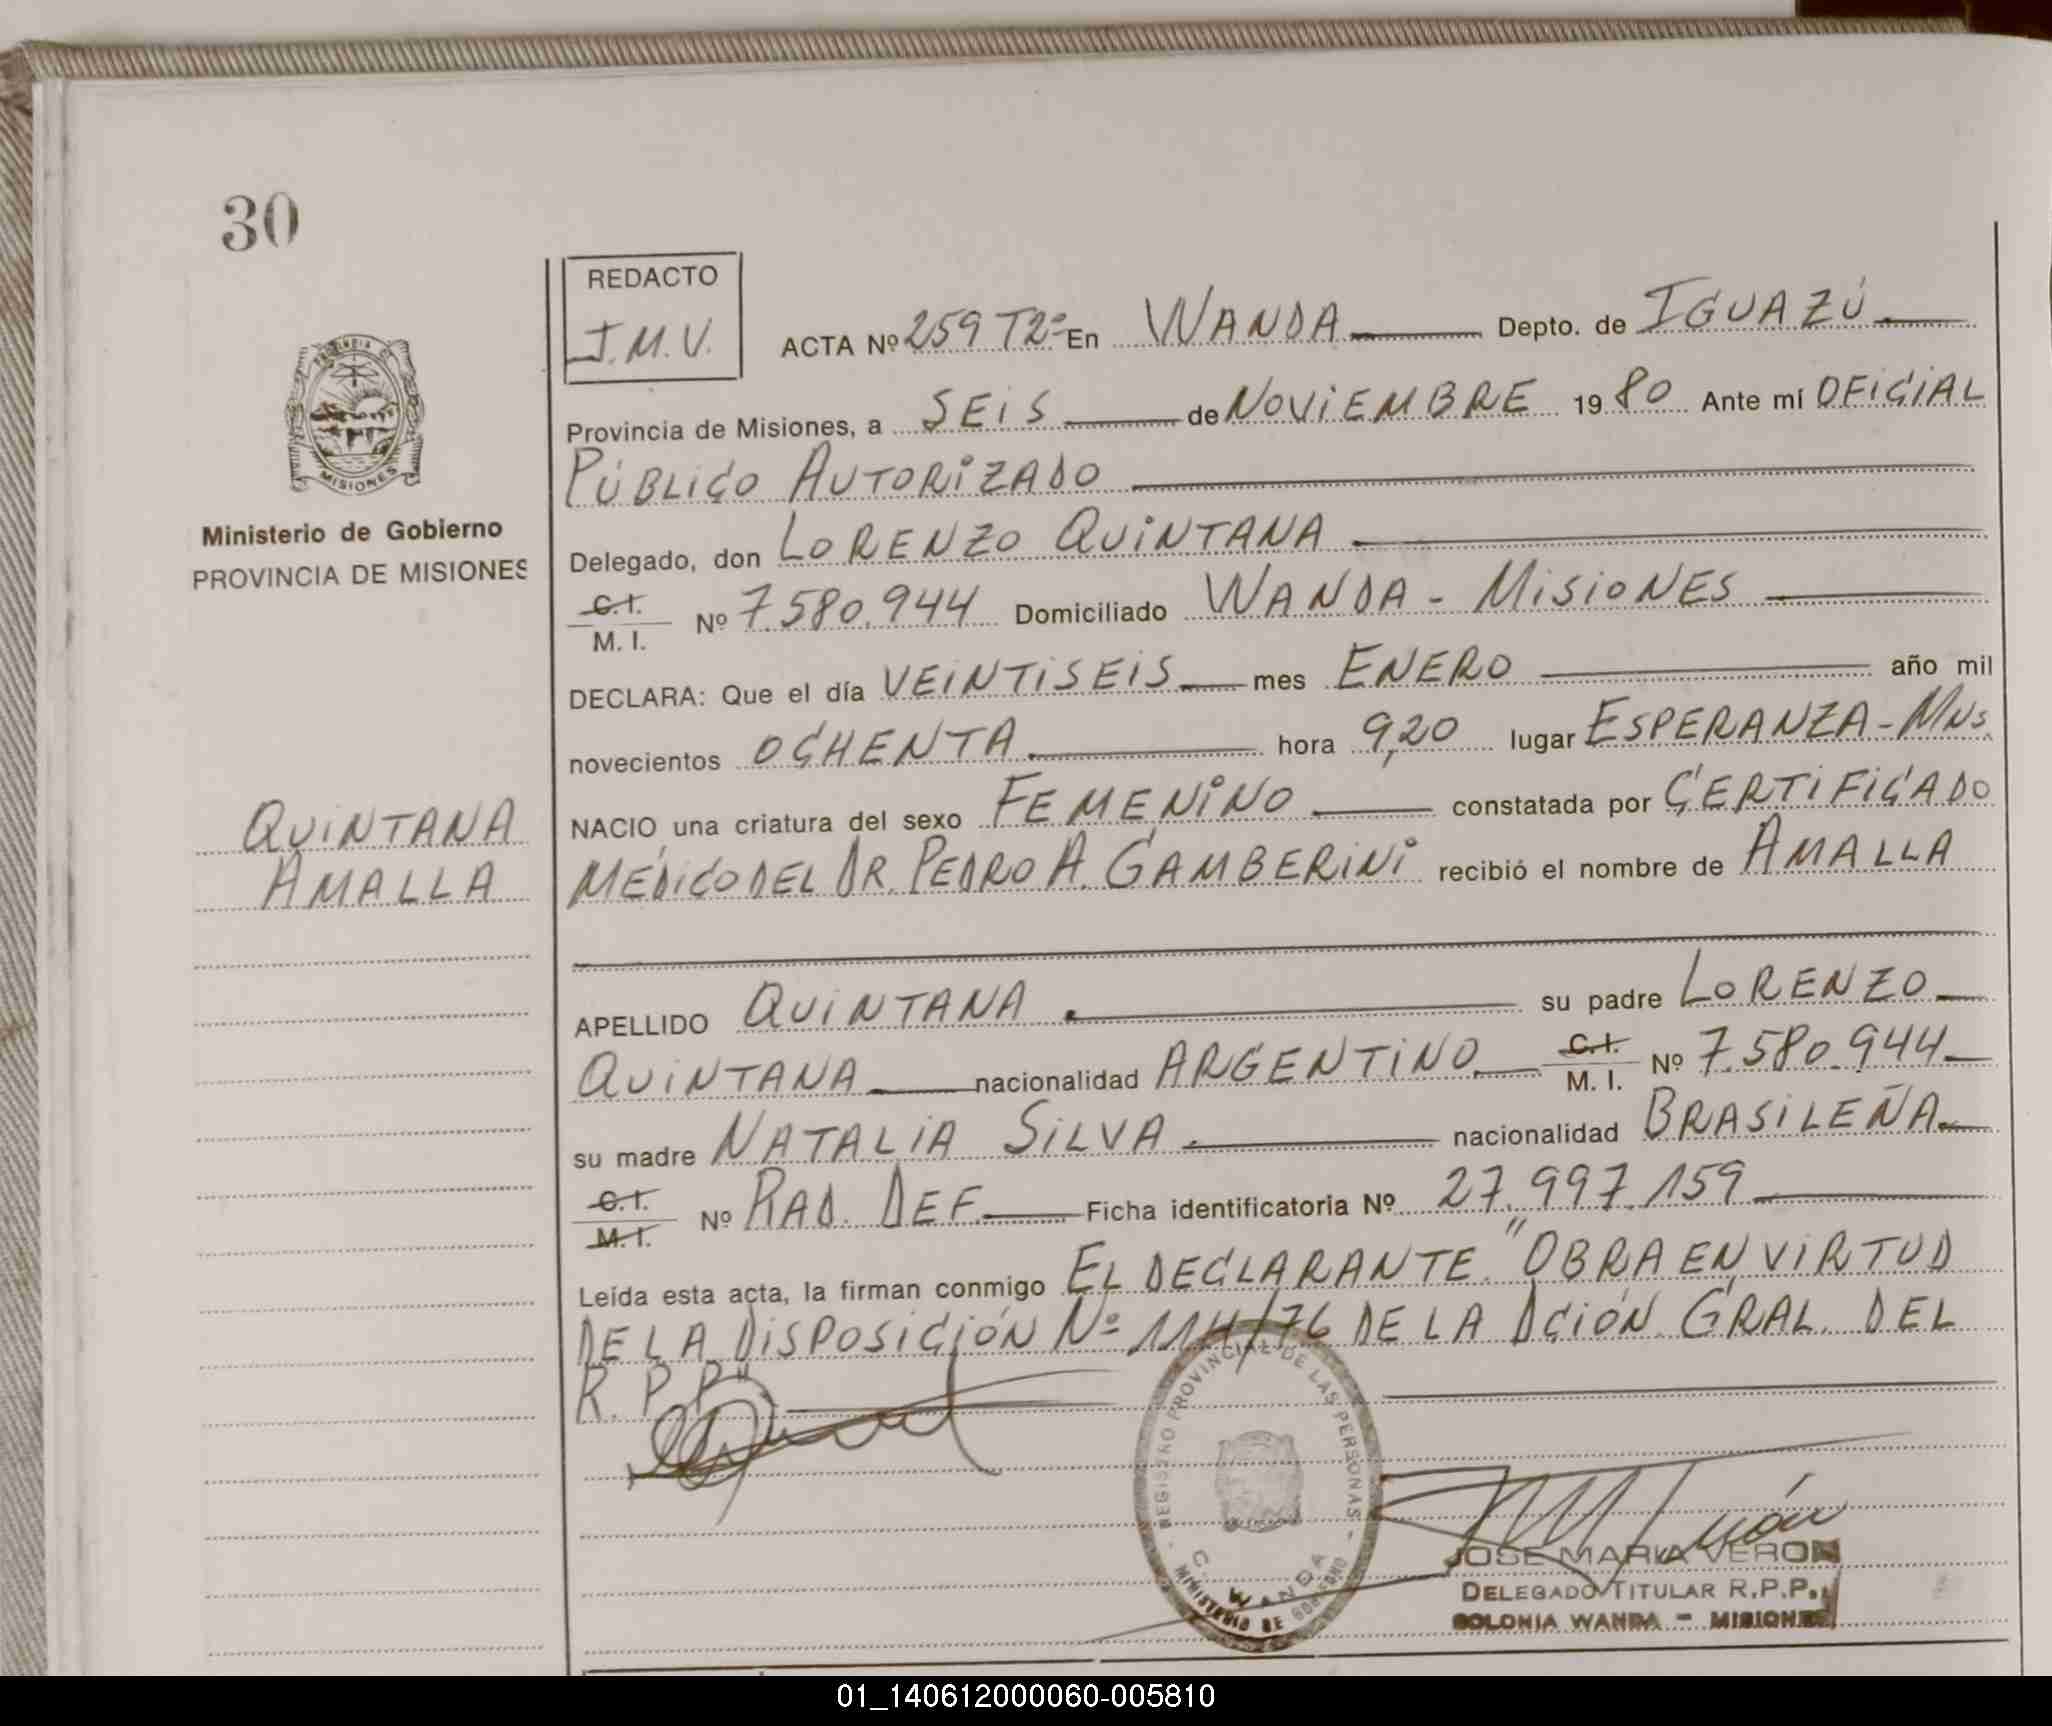 30
REDACTO
J.M.V.
ACTA Nº 259 T2º En WANDA Depto. de IGUAZÚ
Provincia de Misiones, a SEIS de NOVIEMBRE 1980 Ante mí OFICIAL
PÚBLICO AUTORIZADO
Delegado, don LORENZO QUINTANA
C.I.
M.I. Nº 7.580.944 Domiciliado WANDA - MISIONES
DECLARA: Que el día VEINTISEIS mes ENERO año mil
novecientos OCHENTA hora 9,20 lugar ESPERANZA - MNS.
NACIO una criatura del sexo FEMENINO constatada por CERTIFICADO
MÉDICO DEL DR. PEDRO A. GAMBERINI recibió el nombre de AMALLA
APELLIDO QUINTANA su padre LORENZO
QUINTANA nacionalidad ARGENTINO C.I. M.I. Nº 7.580.944
su madre NATALIA SILVA nacionalidad BRASILEÑA
C.I.
M.I. Nº RAD. DEF. Ficha identificatoria Nº 27.997.159
Leída esta acta, la firman conmigo EL DECLARANTE. "OBRA EN VIRTUD
DE LA DISPOSICIÓN Nº 114/76 DE LA DCIÓN. GRAL. DEL
R.P.P."
PROVINCIA DE
MISIONES
Ministerio de Gobierno
PROVINCIA DE MISIONES
QUINTANA
AMALLA
REGISTRO PROVINCIAL DE LAS PERSONAS
WANDA
MINISTERIO DE GOBIERNO
JOSE MARIA VERON
DELEGADO TITULAR R.P.P.
COLONIA WANDA - MISIONES
01_140612000060-005810